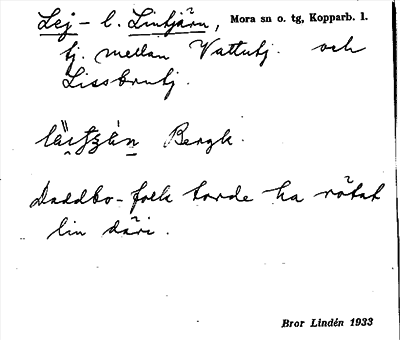 Lej- l. Lintjärn, Mora sn o. tg, Kopparb. l.
tj. mellan Vattutj. och
Lissbrutj.
Bergk.
Daddbo-folk torde ha rötat
lin däri.
Bror Lindén 1933